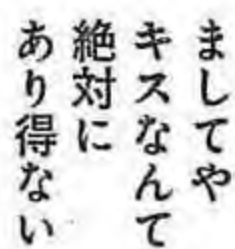 ましてや
キスなんて
絶対に
あり得ない